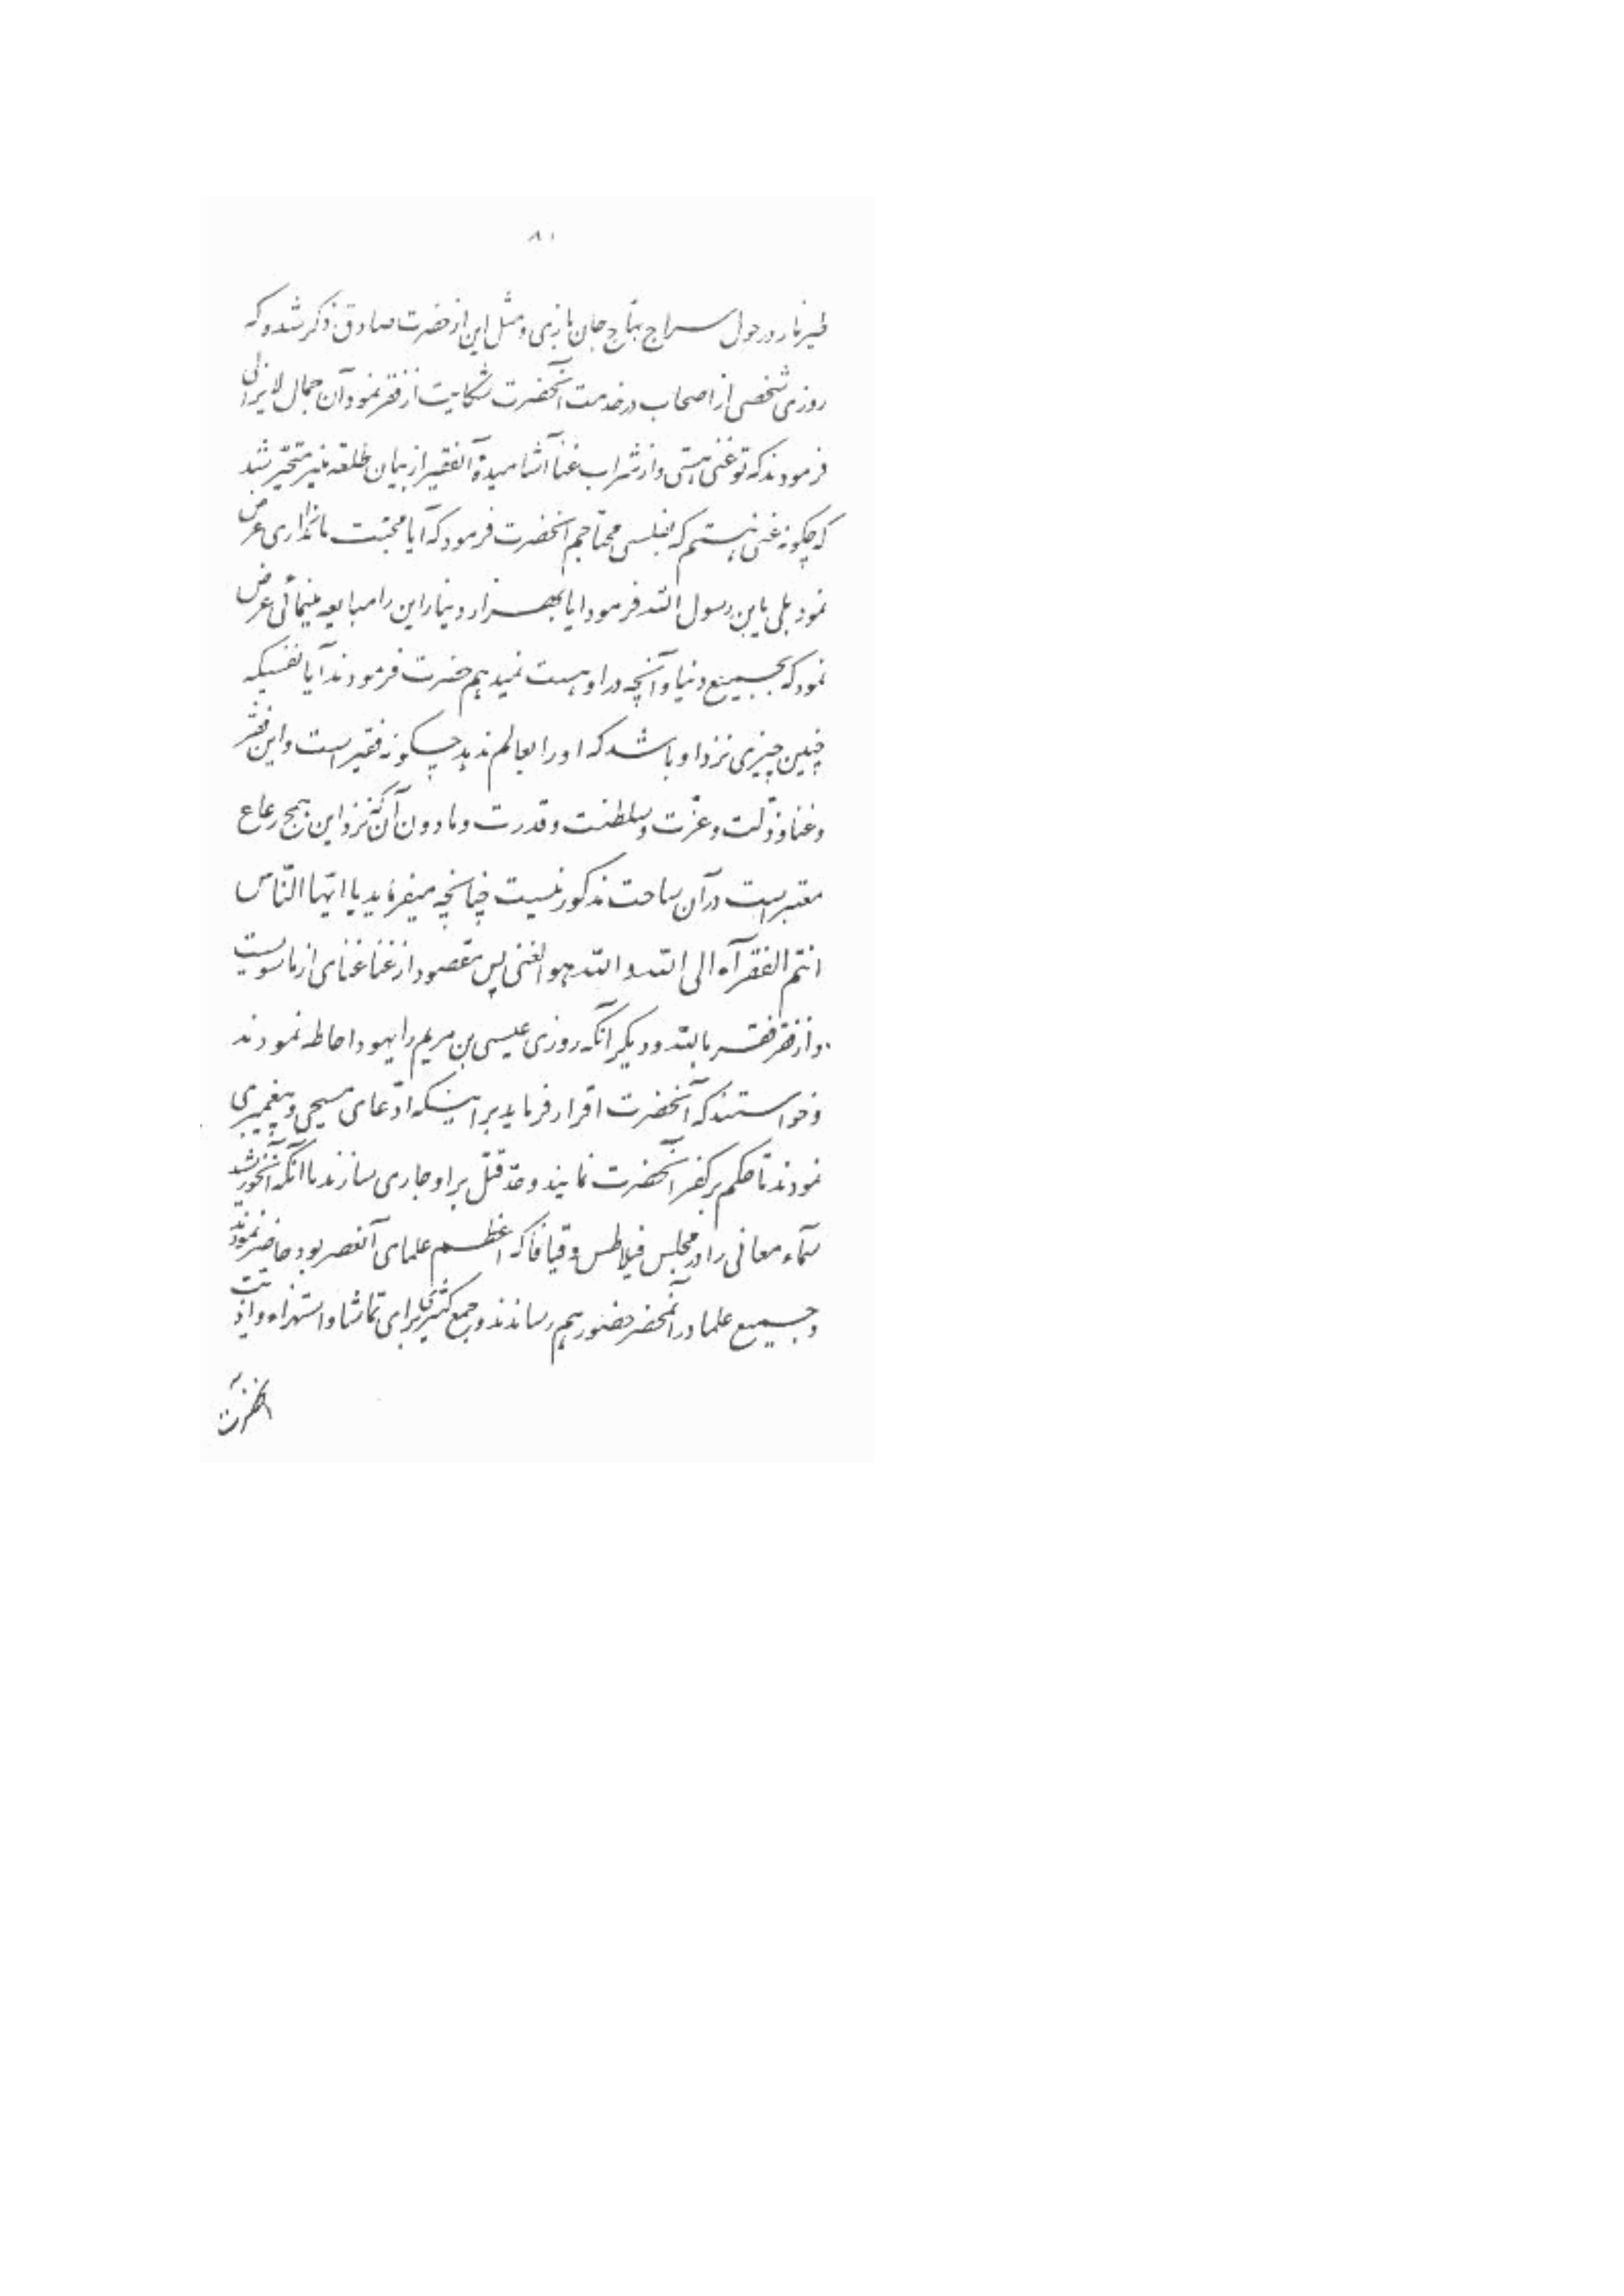 ۸۱
طیرنار در حول سراج بهّاج جان بازی و مثل این از حضرت صادق ذکر شد و که
روزی شخصی از اصحاب در خدمت آنحضرت شکایت از فقر نمود آن جمال لا یزالی
فرمودند که تو غنی هستی و از شراب غنا آشامیدهٔ آنفقیر از بیان طلعه منیر متحیّر شد
که چگونه غنی هستم که بفلسی محتاجم آنحضرت فرمود که آیا محبّت ما نداری عرض
نمود بلی یابن رسول اللّه فرمود ایا بهزار دینار این را مبایعه مینمائی عرض
نمود که بجمیع دنیا و آنچه در او هست نمیدهم حضرت فرمودند آیا نفسیکه
چنین چیزی نزد او باشد که او را بعالم ندهد چگونه فقیر است و این فقر
و غنا و ذلّت و عزّت و سلطنت و قدرت و مادون آن که نزد این همج رعاع
معتبر است در آن ساحت مذکور نیست چنانچه میفرماید یا ایّها النّاس
انتم الفقرآء الی اللّه و اللّه هو الغنی پس مقصود از غنا غنای از ماسویست
و از فقر فقر باللّه و دیگر آنکه روزی عیسی بن مریم را یهود احاطه نمودند
و خواستند که آنحضرت اقرار فرماید بر اینکه ادّعای مسیحی و پیغمبری
نمودند تا حکم بر کفر آنحضرت نمایند و حدّ قتل بر او جاری سازند تا آنکه آنخورشید
سمآء معانی را در مجلس فیلاطس و قیافا که اعظم علمای آنعصر بود حاضر نمودند
و جمیع علما در آنمحضر حضور بهم رساندند و جمع کثیری برای تماشا و استهزاء و اذیّت
آنحضرت